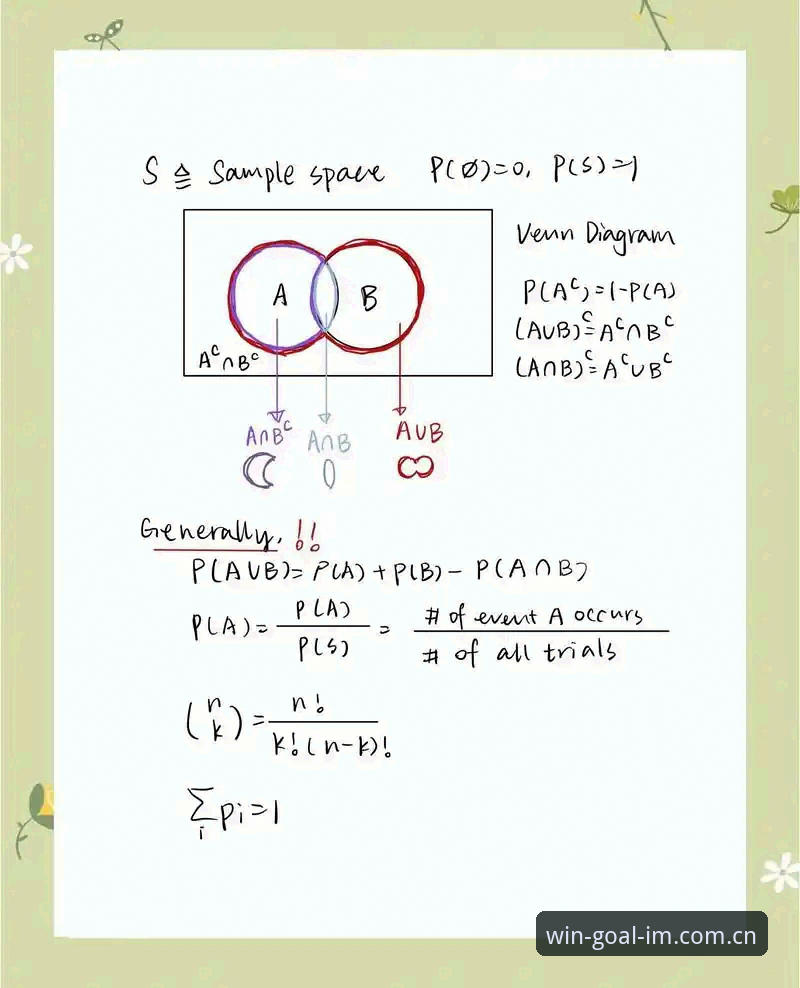 S ≜ Sample space P(∅)=0, P(S)=1
Venn Diagram
A B
A^c∩B^c
P(A^c)=1-P(A)
(A∪B)^c=A^c∩B^c
(A∩B)^c=A^c∪B^c
A∩B^c A∩B A∪B
Generally, !!
P(A∪B)=P(A)+P(B)-P(A∩B)
P(A)=P(A)/P(S)=# of event A occurs/# of all trials
(n k)=n!/k!(n-k)!
∑i pi=1
win-goal-im.com.cn